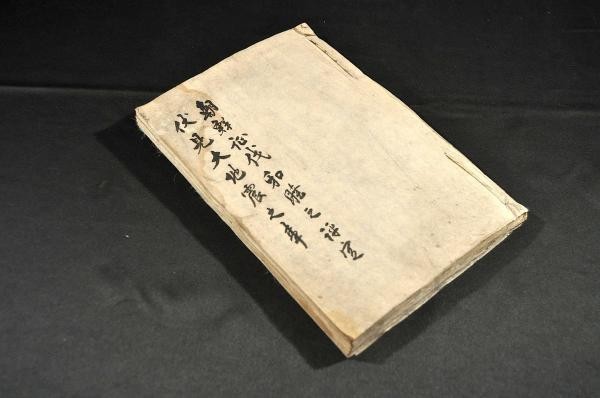 朝鮮征伐和睦之評定
伏見大地震之事